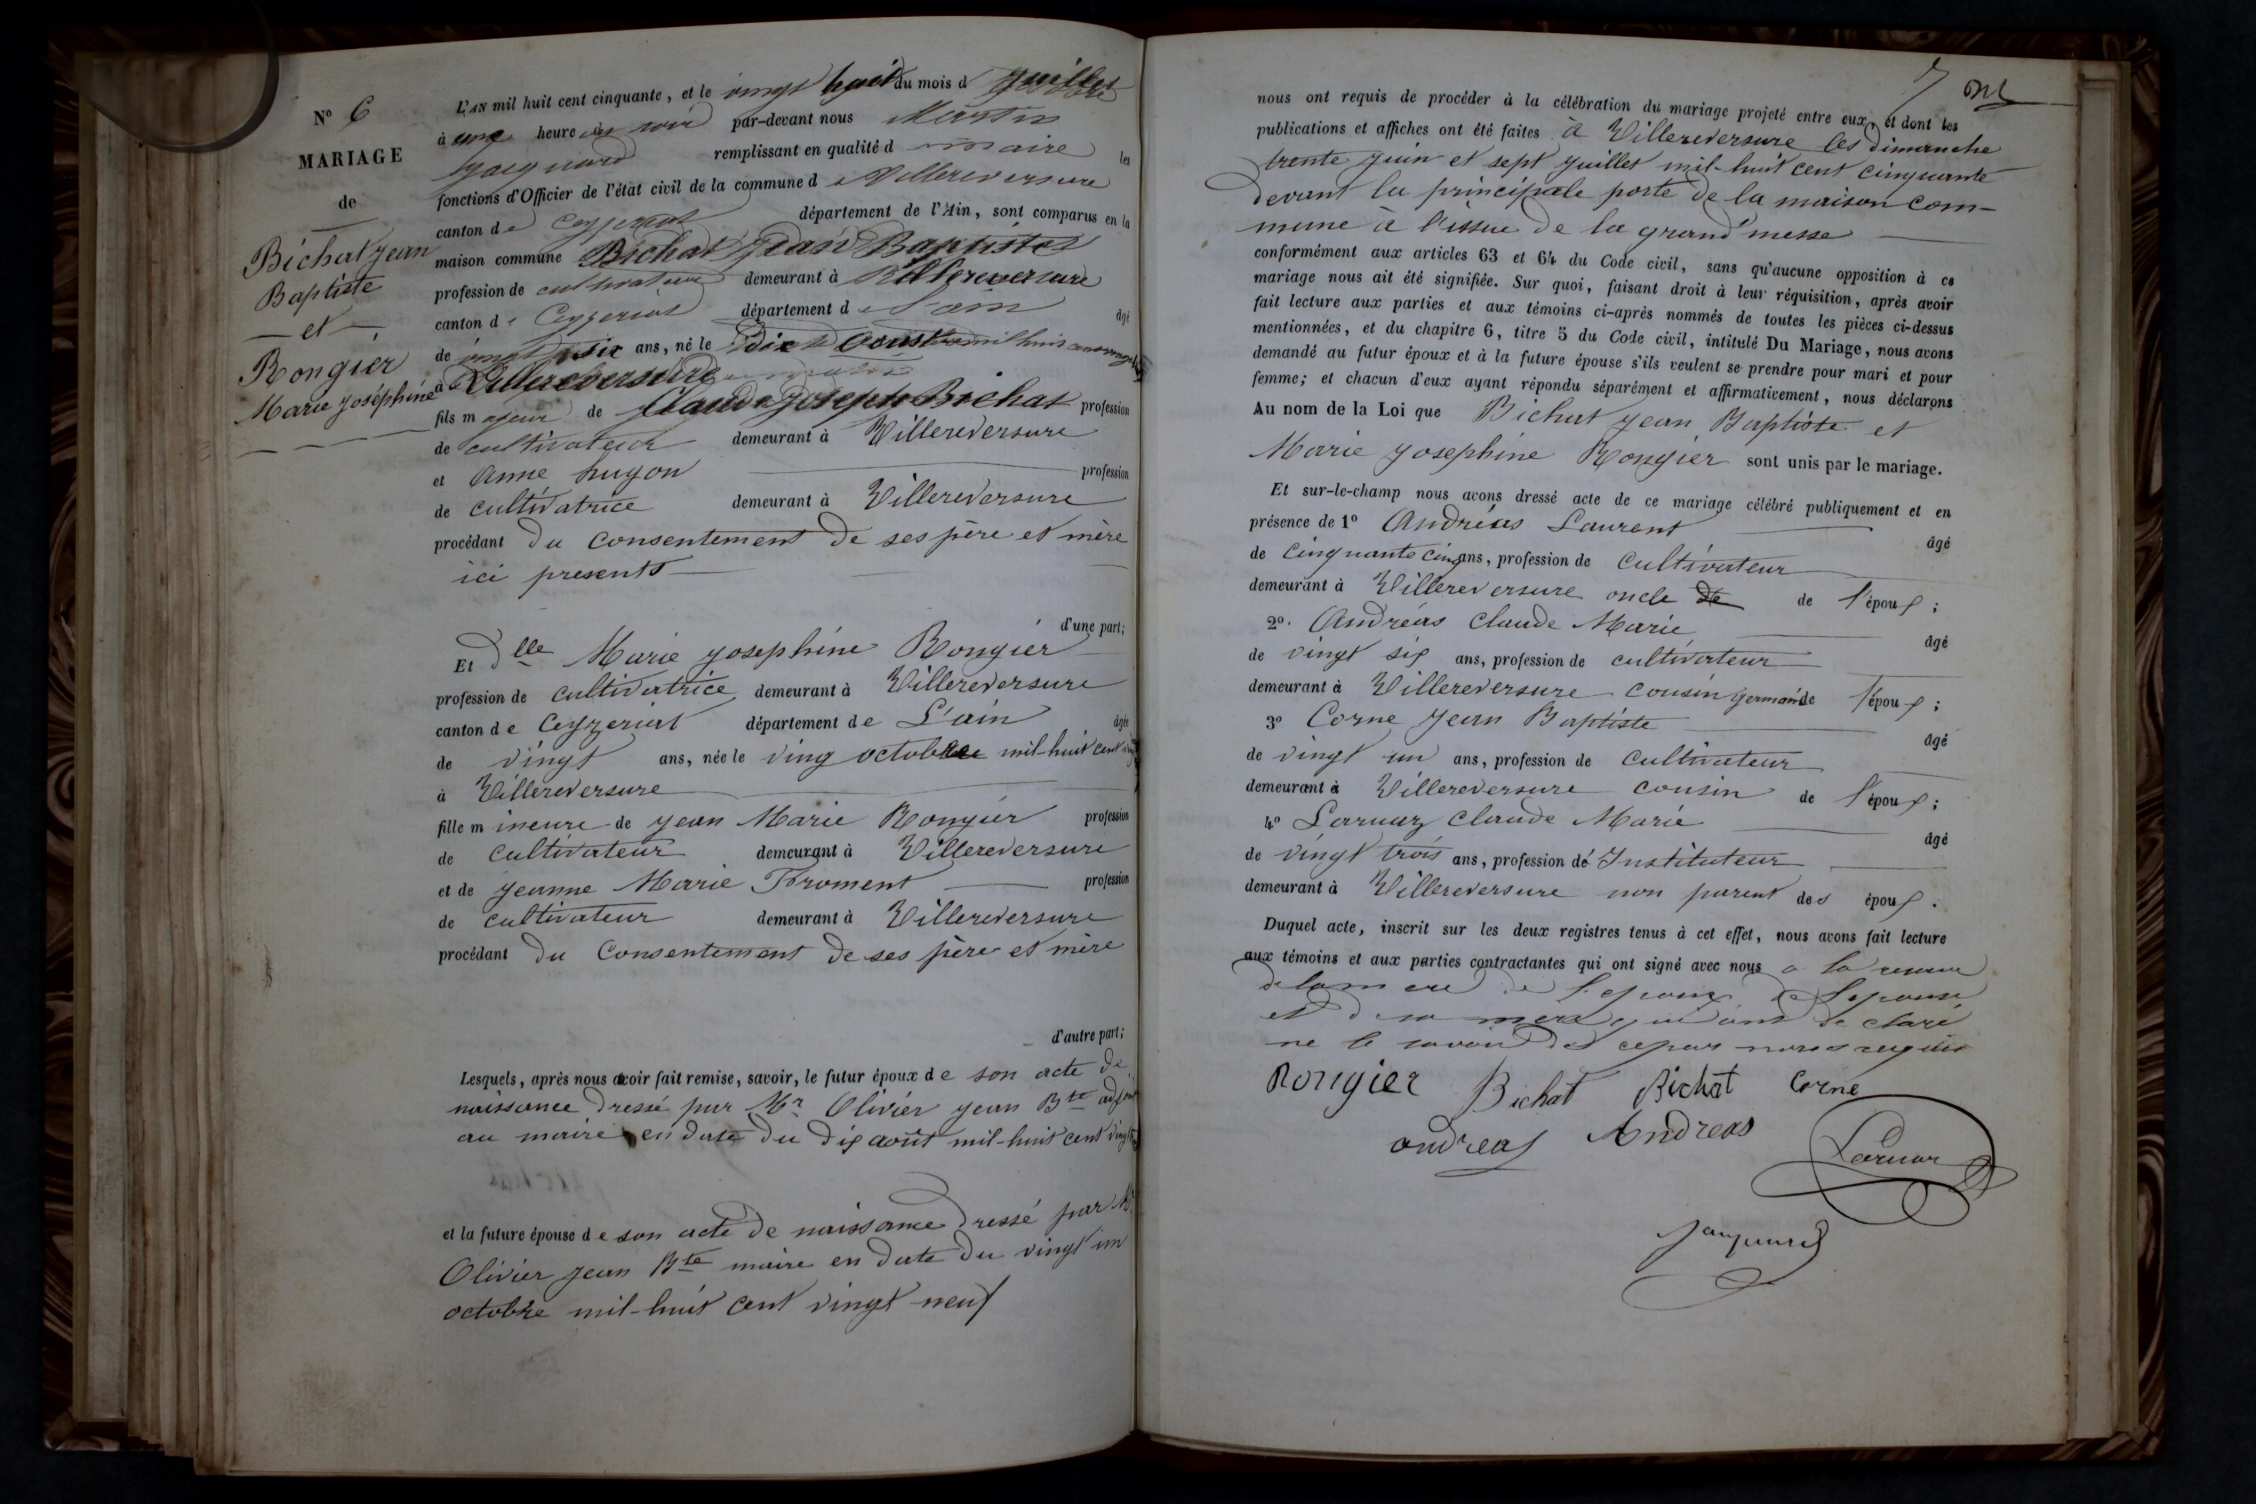 N° 6
MARIAGE
de
Bichat Jean
Baptiste
et
Rongier
Marie Joséphine
L'AN mil huit cent cinquante, et le vingt huit du mois d Juillet
à une heure du soir par-devant nous Martin
Jacquard remplissant en qualité d maire les
fonctions d'Officier de l'état civil de la commune d e Villereversure
canton d e Ceyzeriat département de l'Ain, sont comparus en la
maison commune Bichat Jean Baptiste
profession de cultivateur demeurant à Villereversure
canton d e Ceyzeriat département d e l'ain âgé
de vingt six ans, né le Dix Aoust mil huit cent vingt
à Villereversure
fils m ajeur de Claude Joseph Bichat profession
de cultivateur demeurant à Villereversure
et Anne hugon profession
de cultivatrice demeurant à Villereversure
procédant du consentement de ses père et mère
ici presents
d'une part;
Et Dlle Marie Josephine Rongier
profession de cultivatrice demeurant à Villereversure
canton d e Ceyzeriat département d e L'ain âgée
de vingt ans, née le ving octobre mil-huit cent
à Villereversure
fille m ineure de Jean Marie Rongier profession
de cultivateur demeurant à Villereversure
et de Jeanne Marie Froment profession
de cultivateur demeurant à Villereversure
procédant du Consentement de ses père et mère
d'autre part;
Lesquels, après nous avoir fait remise, savoir, le futur époux d e son acte de
naissance dressé par Mr Olivier Jean Bte adjoint
au maire en date du dix août mil-huit cent vingt
et la future épouse d e son acte de naissance dressé par Mr
Olivier Jean Bte maire en date du vingt un
octobre mil-huit cent vingt neuf
7
nous ont requis de procéder à la célébration du mariage projeté entre eux, et dont les
publications et affiches ont été faites à Villereversure les dimanche
trente juin et sept juillet mil-huit cent cinquante
devant la principale porte de la maison com-
mune à l'issue de la grand'messe
conformément aux articles 63 et 64 du Code civil, sans qu'aucune opposition à ce
mariage nous ait été signifiée. Sur quoi, faisant droit à leur réquisition, après avoir
fait lecture aux parties et aux témoins ci-après nommés de toutes les pièces ci-dessus
mentionnées, et du chapitre 6, titre 5 du Code civil, intitulé Du Mariage, nous avons
demandé au futur époux et à la future épouse s'ils veulent se prendre pour mari et pour
femme; et chacun d'eux ayant répondu séparément et affirmativement, nous déclarons
Au nom de la Loi que Bichat Jean Baptiste et
Marie Josephine Rongier sont unis par le mariage.
Et sur-le-champ nous avons dressé acte de ce mariage célébré publiquement et en
présence de 1° Andréas Laurent âgé
de cinquante cinq ans, profession de cultivateur
demeurant à Villereversure oncle de de l'époux;
2°. Andréas Claude Marie âgé
de vingt six ans, profession de cultivateur
demeurant à Villereversure cousin germain de l'époux;
3° Corne Jean Baptiste âgé
de vingt un ans, profession de cultivateur
demeurant à Villereversure cousin de l'époux;
4° Larnaz Claude Marie âgé
de vingt trois ans, profession de Instituteur
demeurant à Villereversure non parent des époux.
Duquel acte, inscrit sur les deux registres tenus à cet effet, nous avons fait lecture
aux témoins et aux parties contractantes qui ont signé avec nous a la reserve
de la mere de l'epoux de l'epouse
et de sa mere qui ont declaré
ne le savoir de ce par nous requis
Rongier Bichat Bichat Corne
andreas Andreas
Larnaz
Jacquard